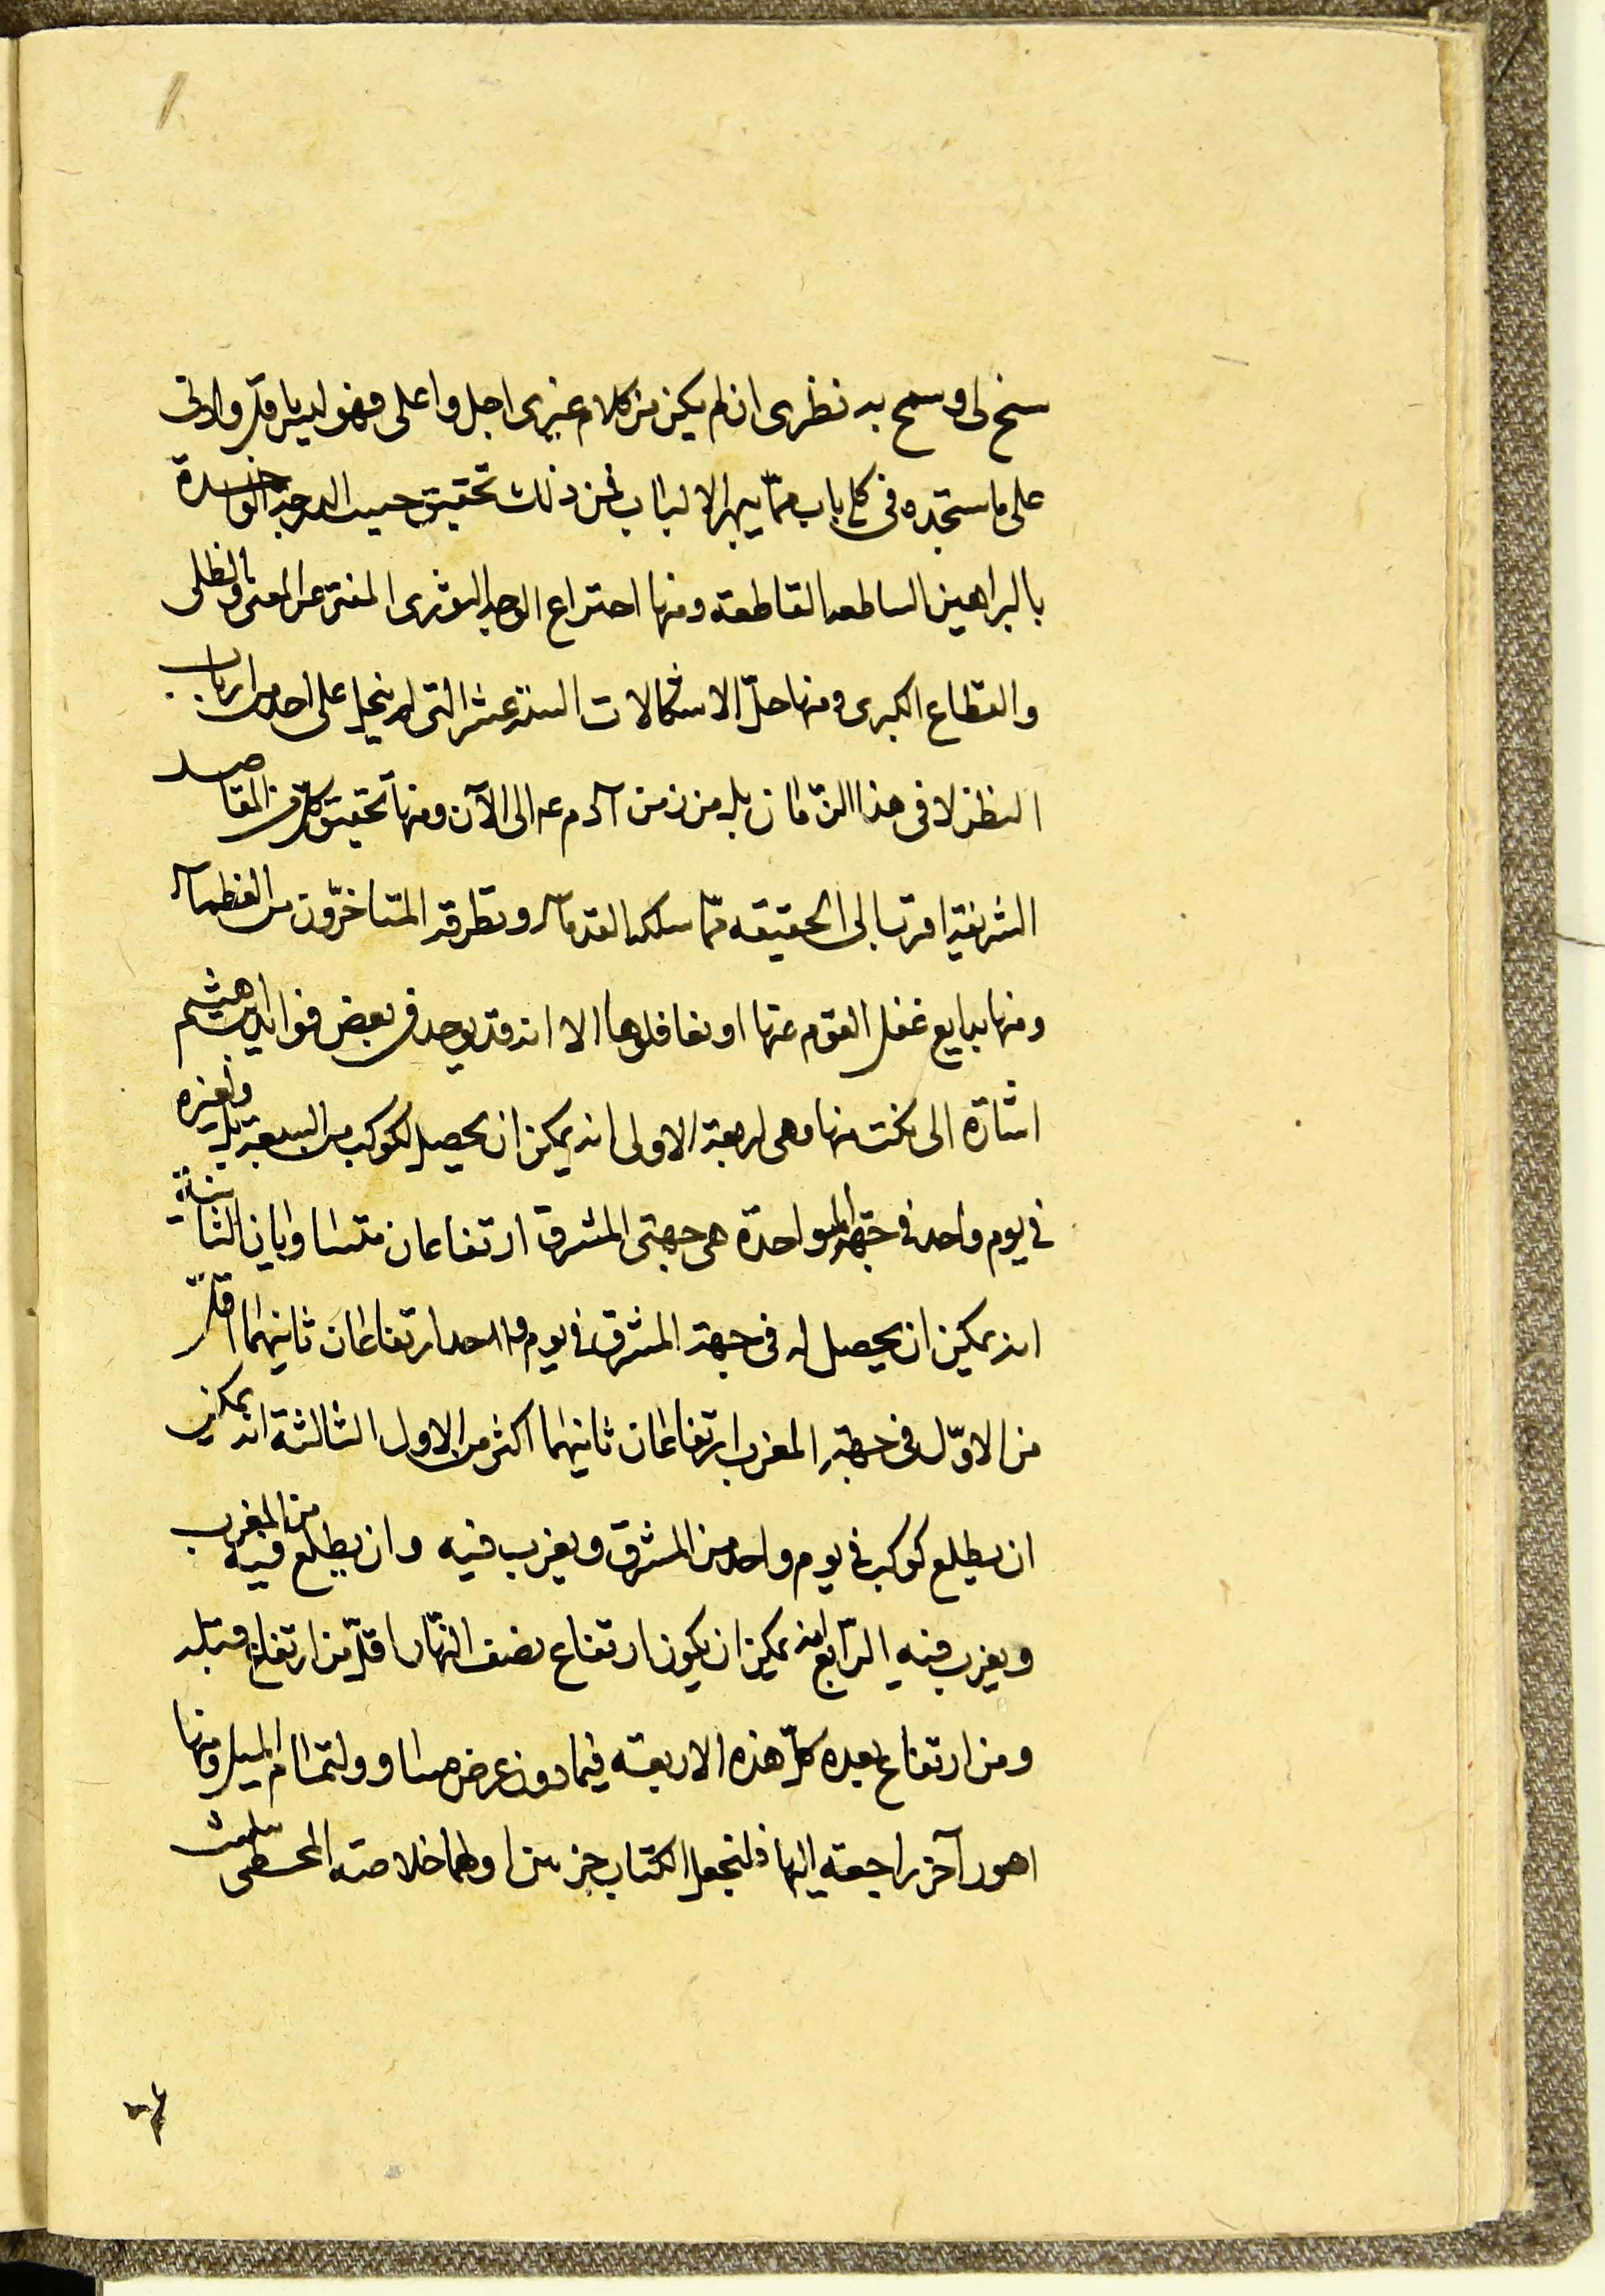 سنح لى وسمح به نظرى ان لم يكن من كلام غيرى اجل واعلى فهو ليس باقل وادنى
على ما ستجده فى كل باب ممّا يبهر الالباب فمن ذلك تحقيق جيب الدرجة الواحدة
بالبراهين الساطعه القاطعة ومنها اختراع الوجه الوترى المغنى عن المغنى والظلى
والقطاع الكبرى ومنها حلّ الاشكالات الستة عشر التى لم ينحل على احد من ارباب
النظر لا فى هذا الزّمان بل من زمن آدم عه الى الآن ومنها تحقيق كلّ من المقاصد
الشريفة اقرب الى الحقيقه ممّا سلكه القدمآء وتطرقه المتاخرّون من العظمآء
ومنها بدايع غفل القوم عنها او تغافلوها الا انه قد يوجد فى بعض فوايد ابن هيثم
اشارة الى نكت منها وهى اربعة الاولى انه يمكن ان يحصل لكوكب من السبعة بل ولغيره
فى يوم واحد فى جهة واحدة هى جهتى المشرق ارتفاعان متساويان الثانية
انه يمكن ان يحصل له فى جهة المشرق فى يوم واحد ارتفاعان ثانيهما اقلّ
من الاوّل فى جهة المغرب ارتفاعان ثانيهما اكثر من الاول الثالثة انه يمكن
ان يطلع كوكب فى يوم واحد من المشرق ويغرب فيه وان يطلع من المغرب فيه
ويغرب فيه الرّابع انه يمكن ان يكون ارتفاع نصف النهار اقلّ من ارتفاع قبله
ومن ارتفاع بعده كلّ هذه الاربعة فيما دون عرض مساو ولتمام الميل ومنها
امور آخر راجعة اليها فلنجعل الكتاب جزئين اولهما خلاصة المجسطى